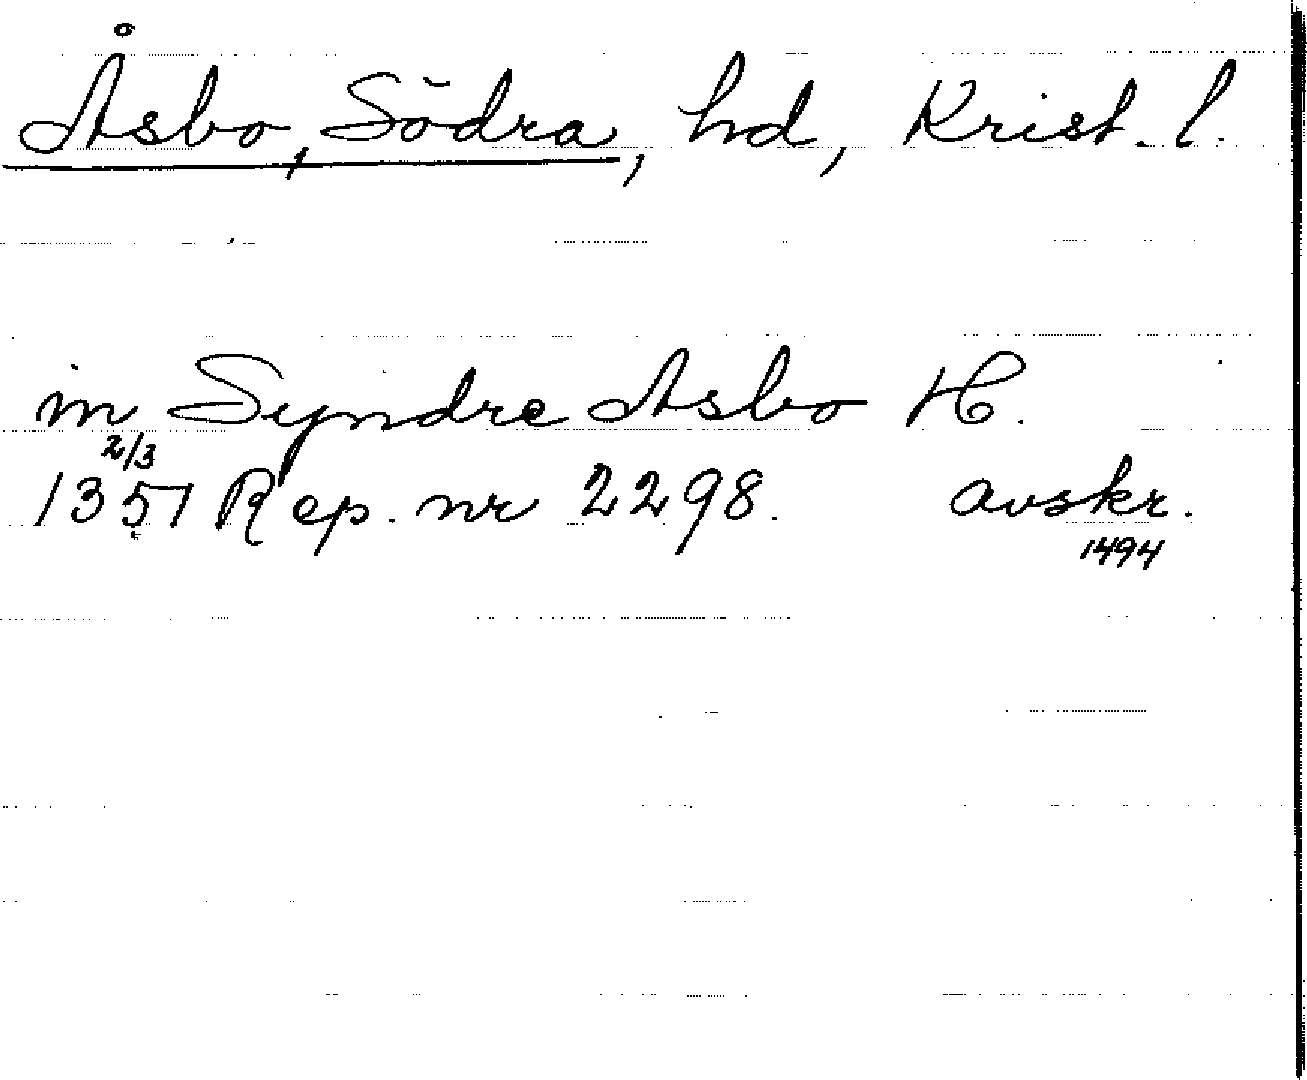 Åsbo, Södra, hd, Krist. l.
in Syndre Asbo H.
2/3
1351 Rep. nr 2298. avskr.
1494